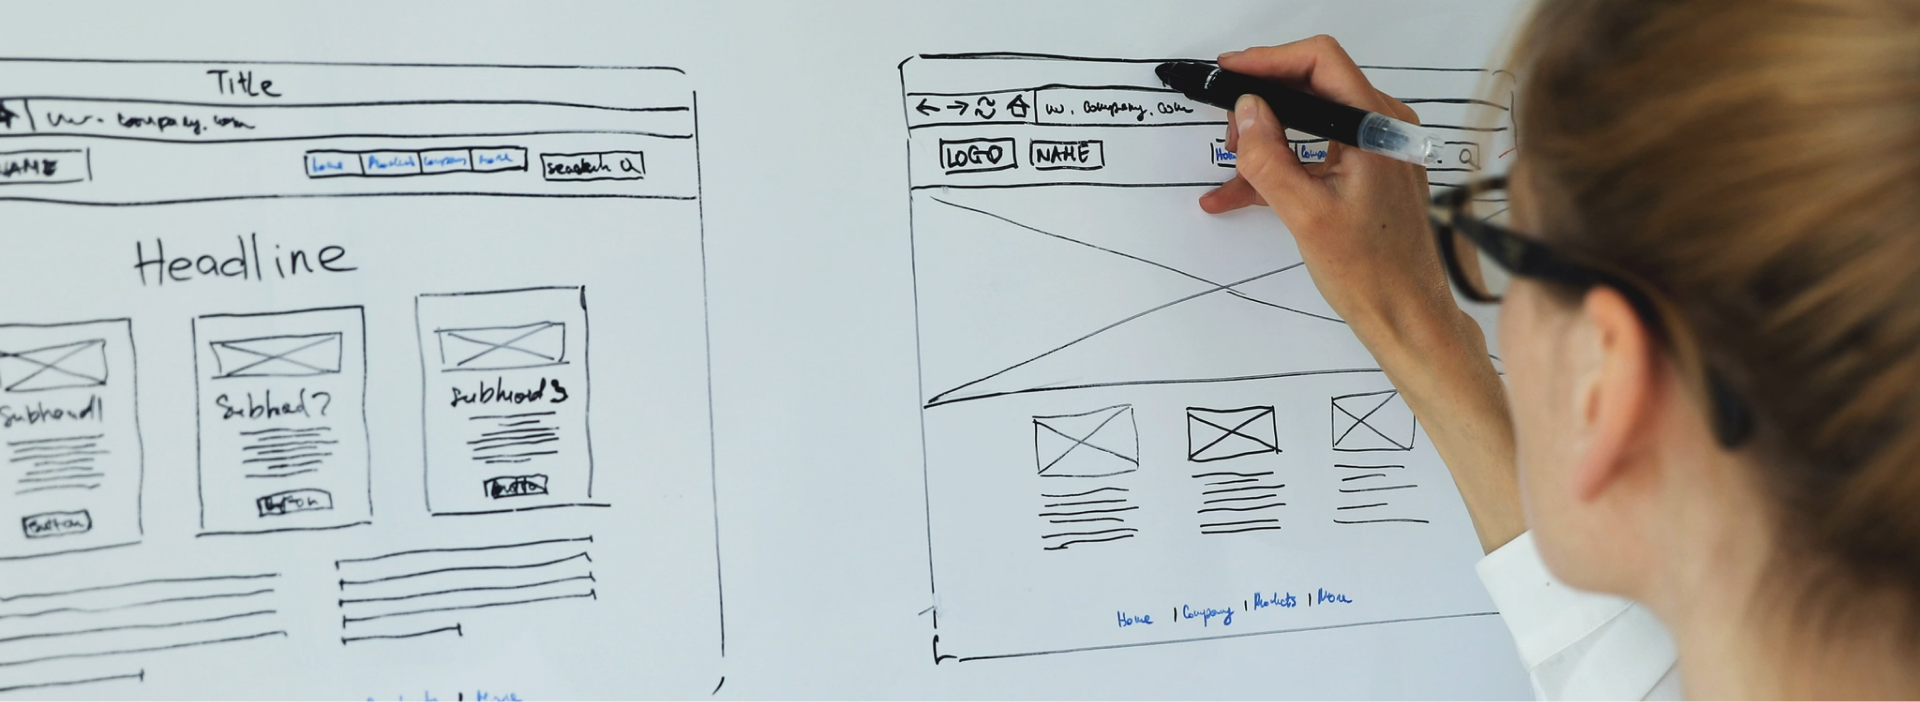 Title
w. company.com
NAME
Home Products Company More
search
Headline
Subhead1
Subhead2
Subhead3
button
button
button
More
w. company.com
LOGO
NAME
Home
Home | Company | Products | More